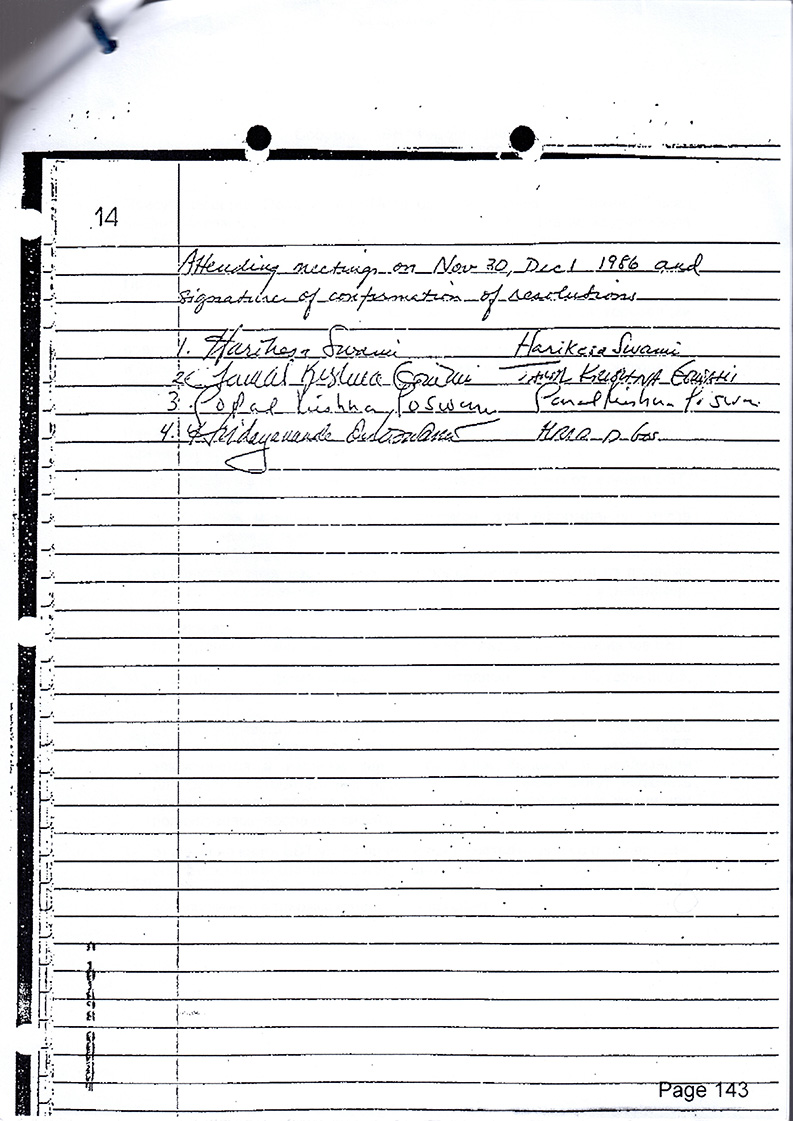 14
Attending meetings on Nov 30, Dec 1 1986 and
signature of confirmation of resolutions
1. Harikesa Swami Harikesa Swami
2. Tamal Krishna Goswami Tamal Krishna Goswami
3. Gopal Krishna Goswami Gopal Krishna Goswami
4. Hridayananda
Page 143